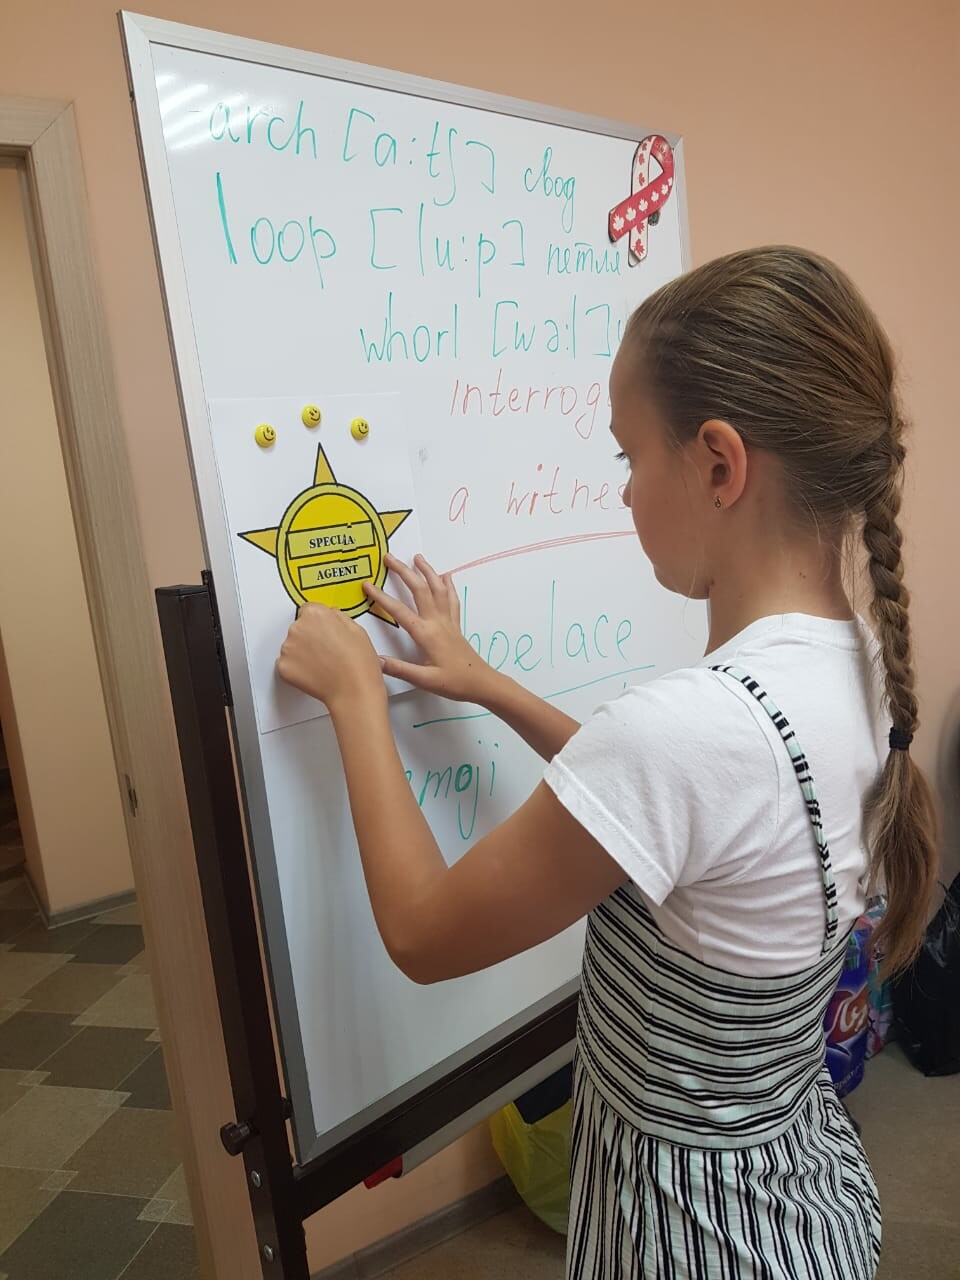 -arch [a:tʃ] свод
loop [lu:p] петля
whorl [wə:l]
interrog
a witnes
SPECLIA
AGEENT
hoelace
emoji